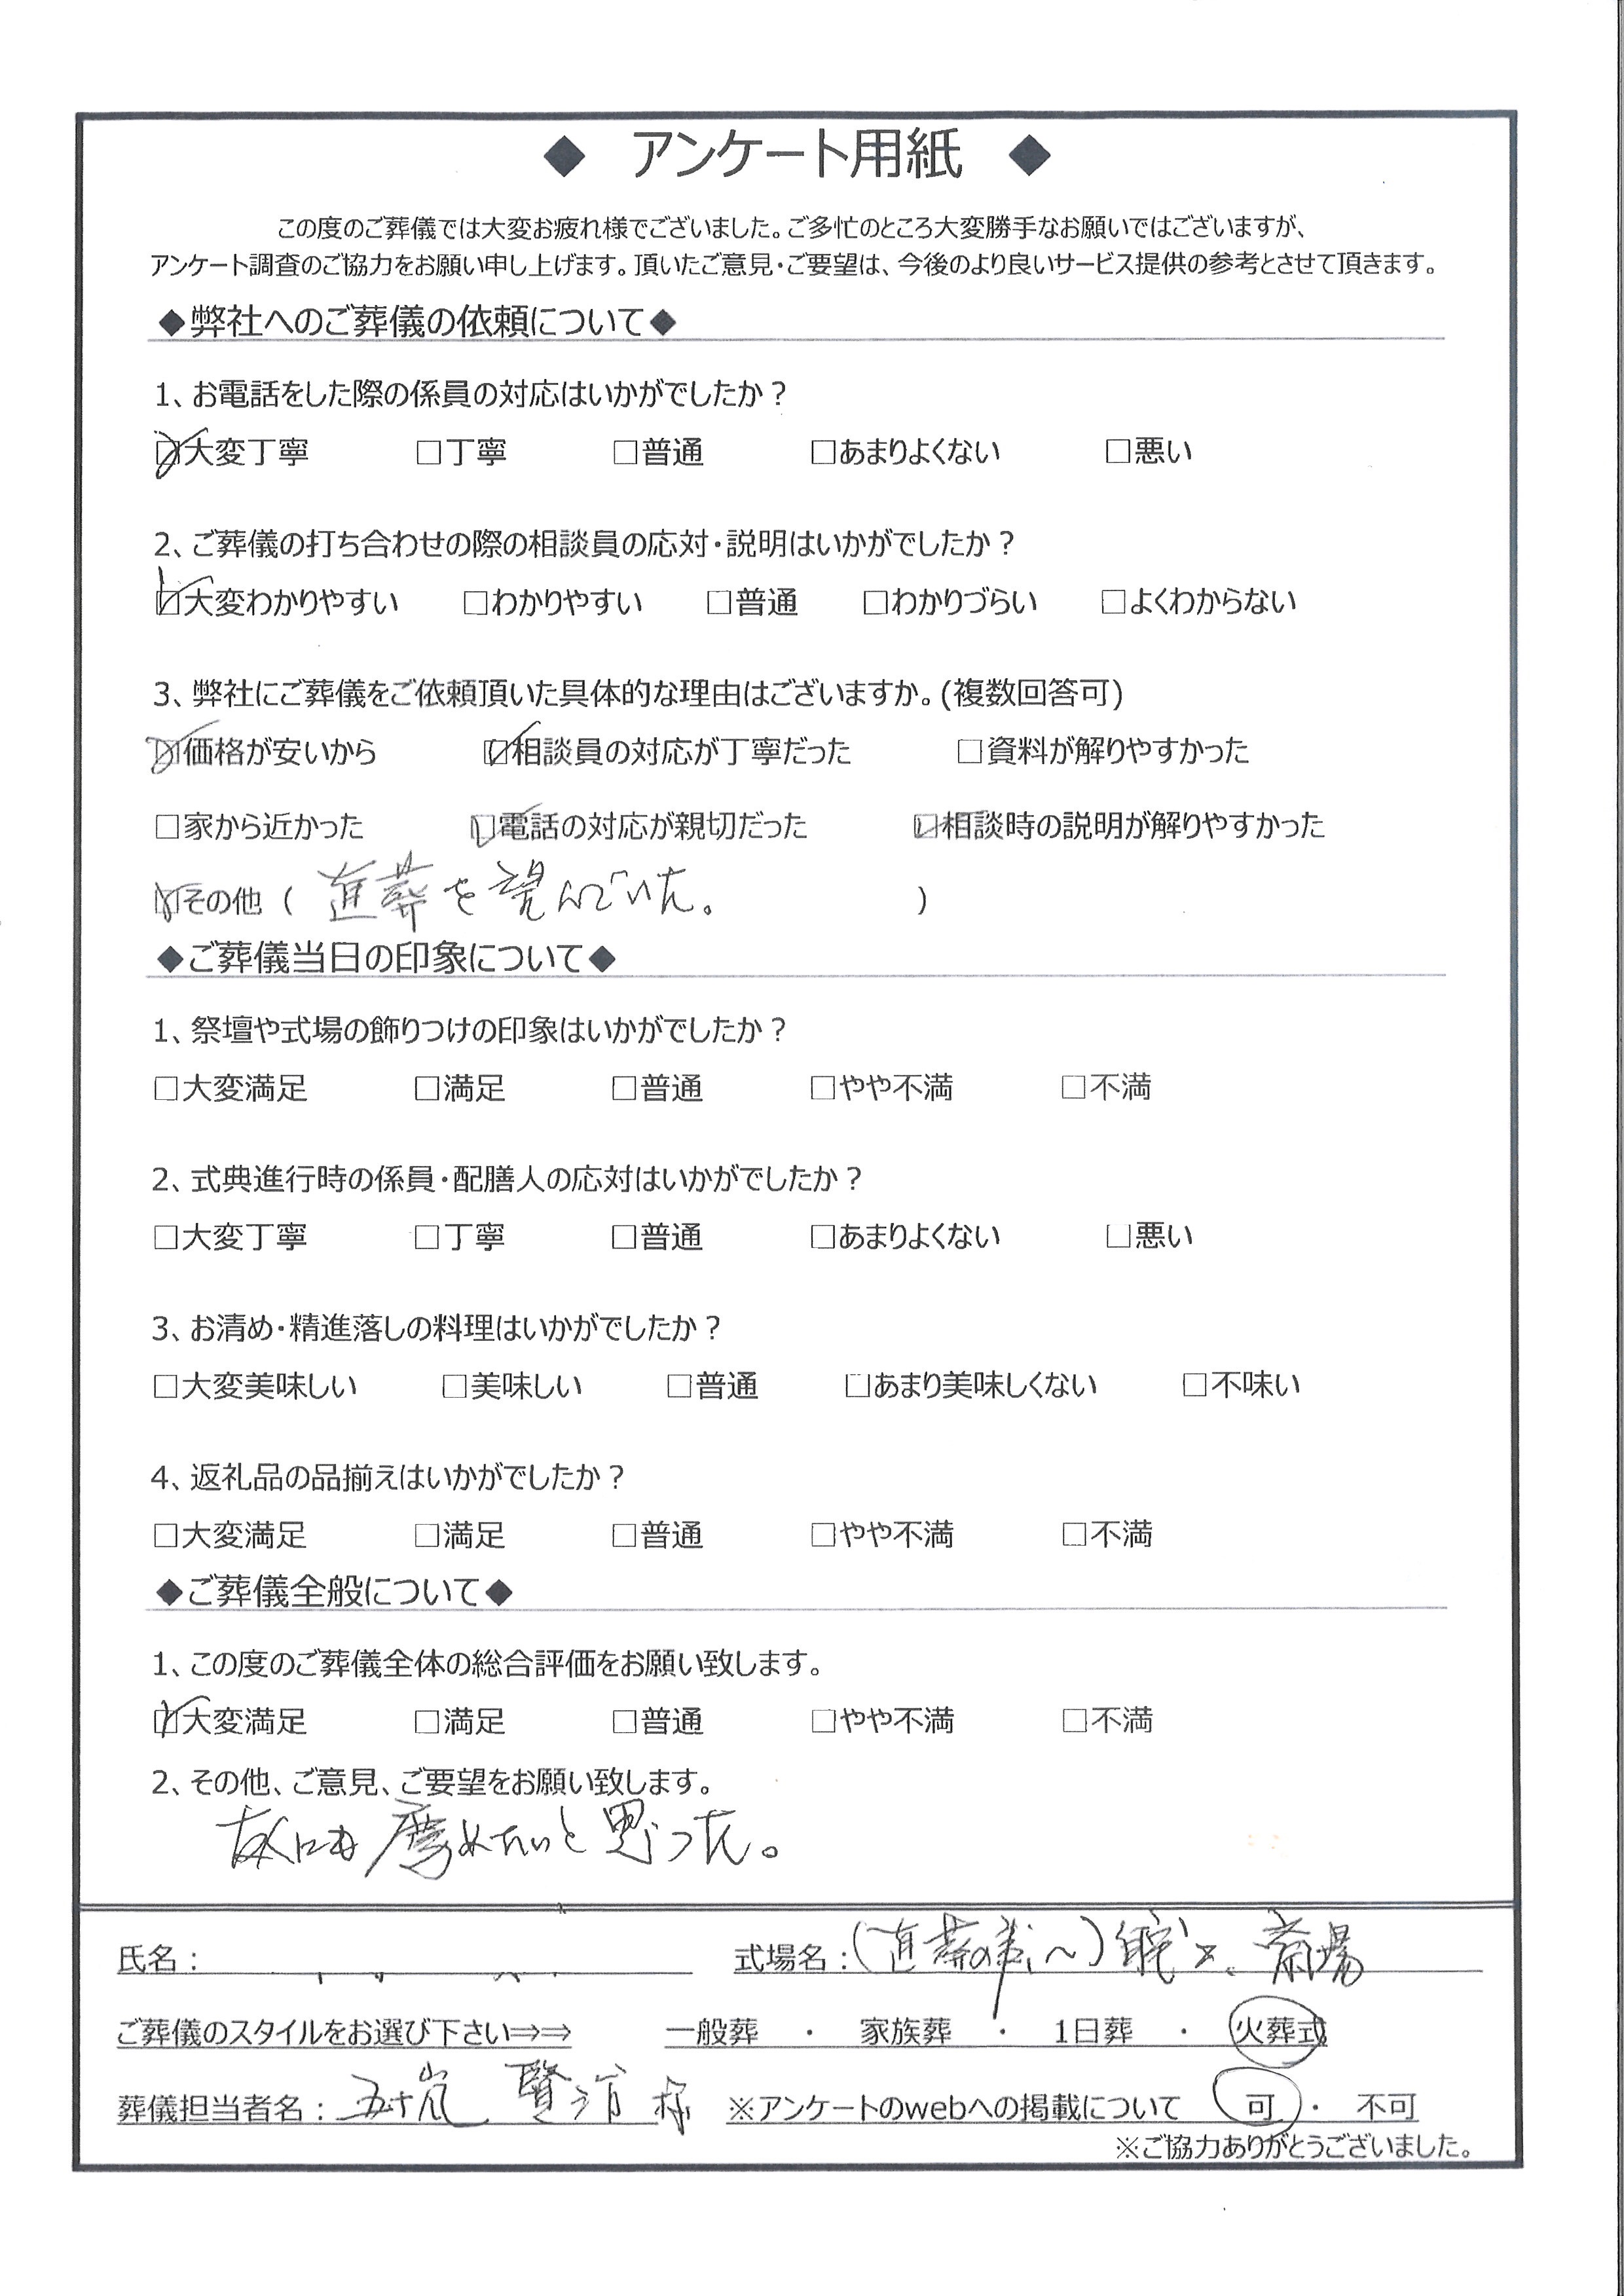 ◆ アンケート用紙 ◆
この度のご葬儀では大変お疲れ様でございました。ご多忙のところ大変勝手なお願いではございますが、
アンケート調査のご協力をお願い申し上げます。頂いたご意見・ご要望は、今後のより良いサービス提供の参考とさせて頂きます。
◆弊社へのご葬儀の依頼について◆
1、お電話をした際の係員の対応はいかがでしたか？
☑大変丁寧 □丁寧 □普通 □あまりよくない □悪い
2、ご葬儀の打ち合わせの際の相談員の応対・説明はいかがでしたか？
☑大変わかりやすい □わかりやすい □普通 □わかりづらい □よくわからない
3、弊社にご葬儀をご依頼頂いた具体的な理由はございますか。(複数回答可)
☑価格が安いから ☑相談員の対応が丁寧だった □資料が解りやすかった
□家から近かった ☑電話の対応が親切だった ☑相談時の説明が解りやすかった
☑その他（ 進葬を望んでいた。 ）
◆ご葬儀当日の印象について◆
1、祭壇や式場の飾りつけの印象はいかがでしたか？
□大変満足 □満足 □普通 □やや不満 □不満
2、式典進行時の係員・配膳人の応対はいかがでしたか？
□大変丁寧 □丁寧 □普通 □あまりよくない □悪い
3、お清め・精進落しの料理はいかがでしたか？
□大変美味しい □美味しい □普通 □あまり美味しくない □不味い
4、返礼品の品揃えはいかがでしたか？
□大変満足 □満足 □普通 □やや不満 □不満
◆ご葬儀全般について◆
1、この度のご葬儀全体の総合評価をお願い致します。
☑大変満足 □満足 □普通 □やや不満 □不満
2、その他、ご意見、ご要望をお願い致します。
友人にも薦めたいと思った。
氏名： 式場名：(直葬の 斎場
ご葬儀のスタイルをお選び下さい⇒⇒ 一般葬 ・ 家族葬 ・ 1日葬 ・ 火葬式
葬儀担当者名：五十嵐 賢 様 ※アンケートのwebへの掲載について 可 ・ 不可
※ご協力ありがとうございました。